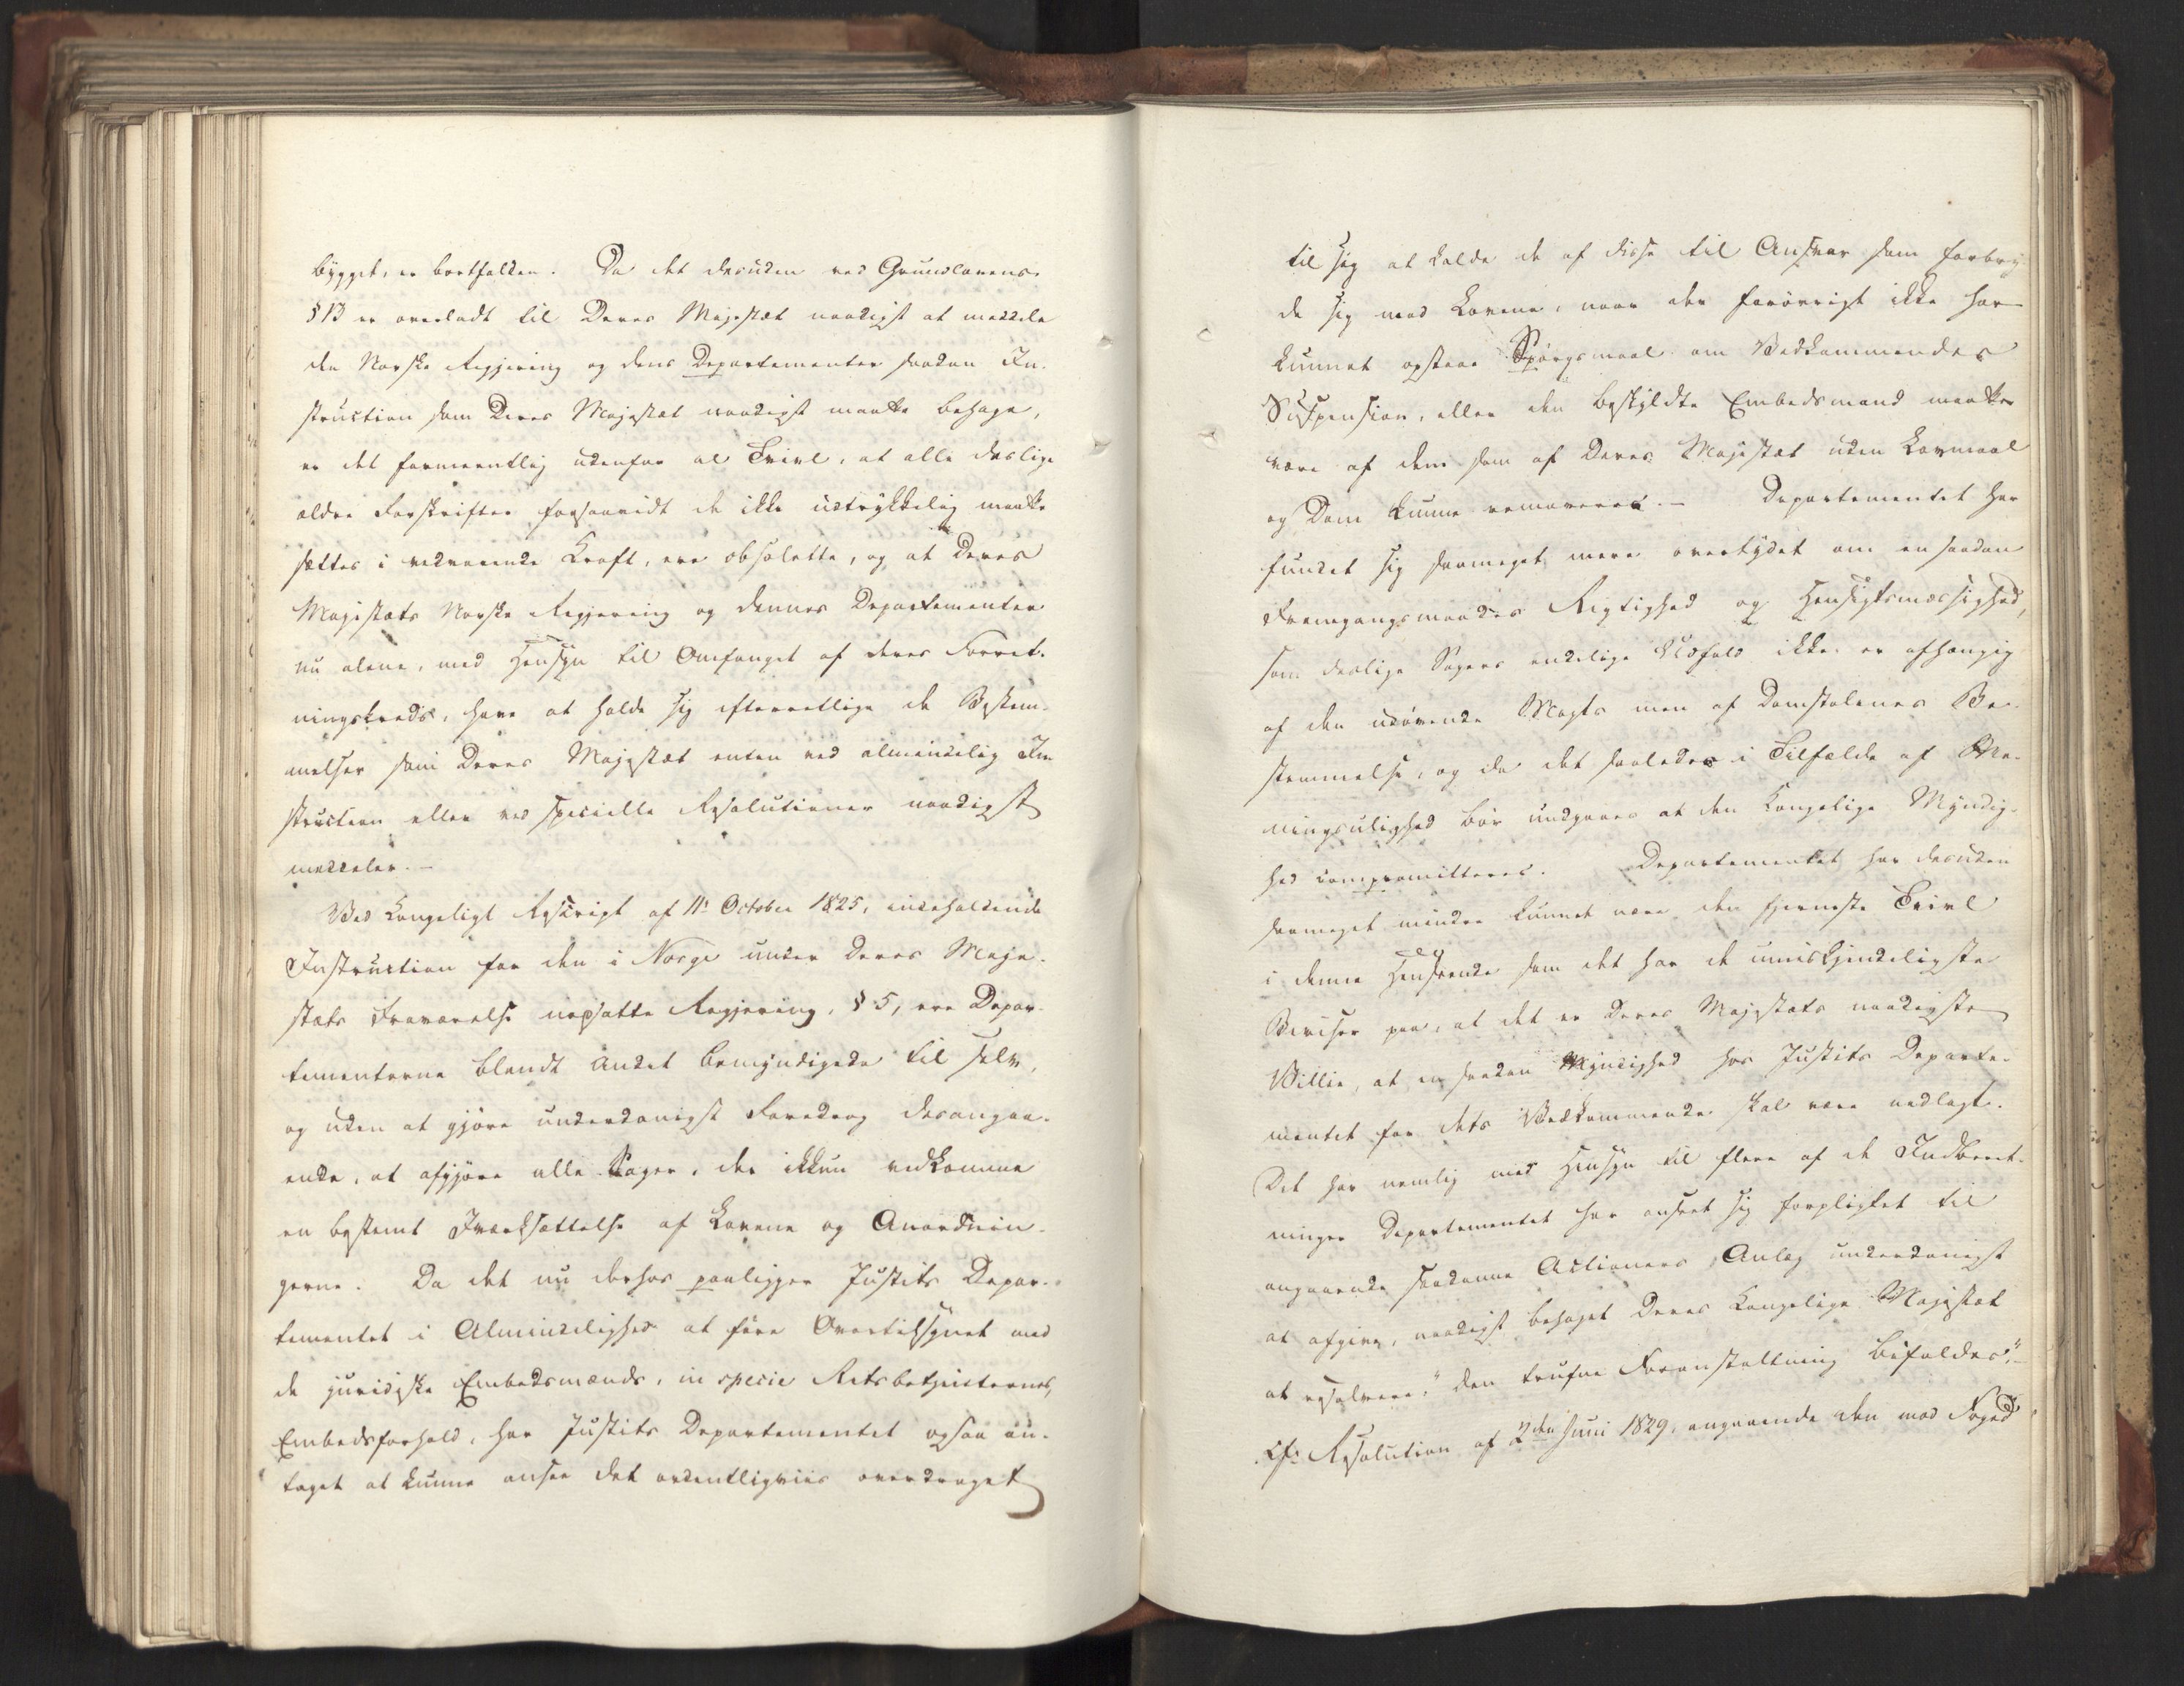 bygget, er bortfalden. Da det desuden ved Grundlovens
§ 13 er overladt til Deres Majestæt naadigst at meddele
den Norske Regjering og dens Departementer saadan In-
struction som Deres Majestæt naadigst maatte behage,
er det formeentlig udenfor al Tvivl, at alle deslige
ældre Forskrifter forsaavidt de ikke udtrykkelig maatte
sættes i vedvarende Kraft, ere obsolette, og at Deres
Majestæts Norske Regjering og dennes Departementer
nu alene, med Hensyn til Omfanget af deres Forret-
ningskreds, have at holde sig efterrettlige de Bestem-
melser som Deres Majestæt enten ved almindelig In-
struction eller ved specielle Resolutioner naadigst
meddeler.-
Ved Kongeligt Rescript af 11te October 1825, indeholdende
Instruction for den i Norge under Deres Maje-
stæts Fraværelse nedsatte Regjering, § 5, ere Depar-
tementerne blandt Andet bemyndigede til selv,
og uden at gjøre underdanigst Foredrag desangaa-
ende, at afgjøre alle Sager, der ikkun vedkomme
en bestemt Iværksættelse af Lovene og Anordnin-
gerne. Da det nu derhos paaligger Justits Depar-
tementet i Almindelighed at føre Overtilsynet med
de juridiske Embedsmænds, in specie Retsbetjenternes,
Embedsforhold, har Justits Departementet ogsaa an-
taget at kunne ansee det ordentligviis overdraget
til sig at kalde de af disse til Ansvar som forbry-
de sig mod Lovene, naar der forøvrigt ikke har
kunnet opstaae Spørgsmaal om Vedkommendes
Suspension, eller den beskyldte Embedsmand maatte
være af dem som af Deres Majestæt uden Lovmaal
og Dom kunne removeres.- Departementet har
fundet sig saameget mere overtydet om en saadan
Fremgangsmaades Rigtighed og Hensigtsmæssighed,
som deslige Sagers endelige Udfald ikke er afhængig
af den udøvende Magts men af Domstolenes Be-
stemmelse, og da det saaledes i Tilfælde af Me-
ningsulighed bør undgaaes at den Kongelige Myndig-
hed compromitteres. Departementet har desuden
saameget mindre kunnet nære den fjerneste Tvivl
i denne Henseende som det har de umiskjendeligste
Beviser paa, at det er Deres Majestæts naadigste
Villie, at en saadan Myndighed hos Justits Departe-
mentet for dets Vedkommende skal være nedlagt.
Det har nemlig med Hensyn til flere af de Indberet-
ninger Departementet har anseet sig forpligtet til
angaaende saadanne Actioners Anlæg underdanigst
at afgive, naadigst behaget Deres Kongelige Majestæt
at resolvere: "den trufne Foranstaltning bifaldes",-
cfr Resolution af 2den Juni 1829, angaaende den mod Foged